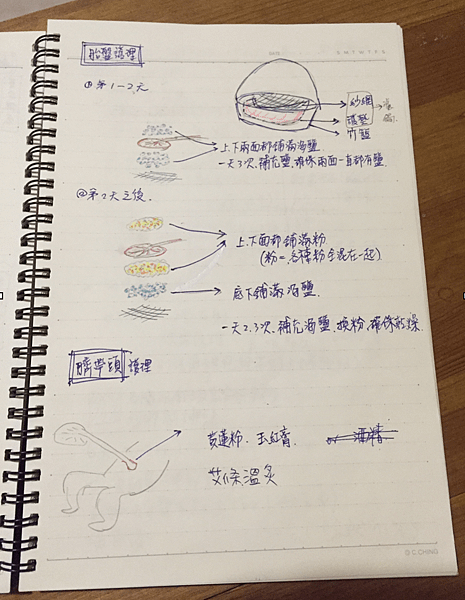 胎盤護理
DATE
S M T W T F S
① 第1-2天
紗網
竹籃
上下兩面都鋪滿海鹽
一天3次、補充鹽、確保兩面一直都有鹽
② 第2天之後.
上下面都鋪滿粉
(粉=各種粉全混在一起)
底下鋪滿海鹽.
一天2.3次、補充海鹽、換粉、確保乾燥.
臍帶頭 護理
黃蓮粉. 玉紅膏. or 酒精
艾條溫灸
C.CHING